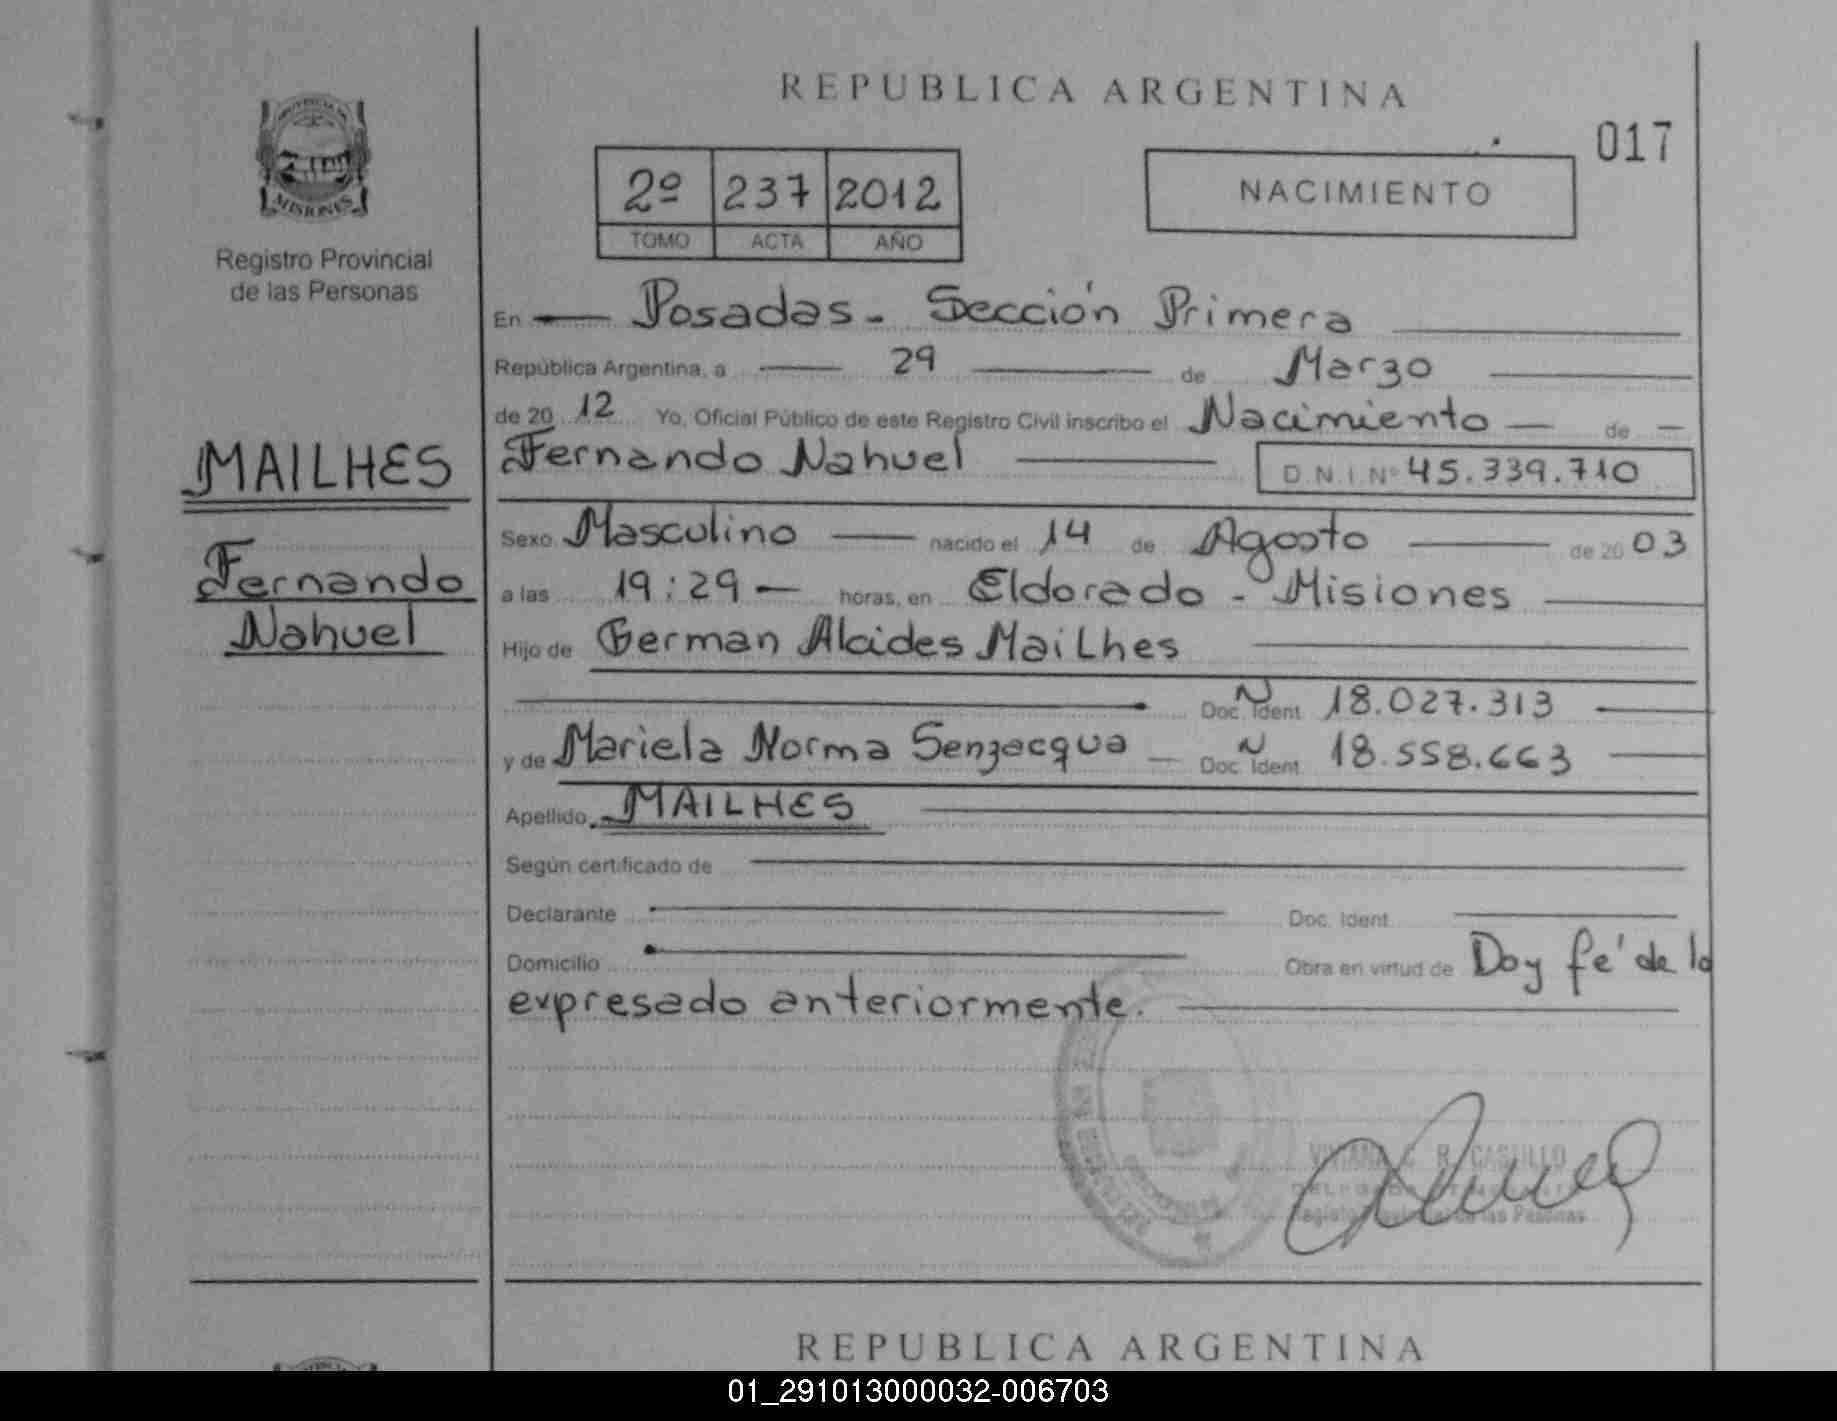 REPUBLICA ARGENTINA
017
2º 237 2012
TOMO ACTA AÑO
NACIMIENTO
PROVINCIA DE
MISIONES
Registro Provincial
de las Personas
En Posadas - Sección Primera
República Argentina, a 29 de Marzo
de 20 12 Yo, Oficial Público de este Registro Civil inscribo el Nacimiento de
MAILHES
Fernando Nahuel D.N.I. Nº 45.339.710
Sexo Masculino nacido el 14 de Agosto de 20 03
Fernando
Nahuel
a las 19:29 horas, en Eldorado - Misiones
Hijo de German Alcides Mailhes
Doc. Ident. 18.027.313
y de Mariela Norma Senzacqua Doc. Ident. 18.558.663
Apellido MAILHES
Según certificado de
Declarante Doc. Ident.
Domicilio Obra en virtud de Doy fé de lo
expresado anteriormente.
R. CASTILLO
de las Personas
REPUBLICA ARGENTINA
01_291013000032-006703